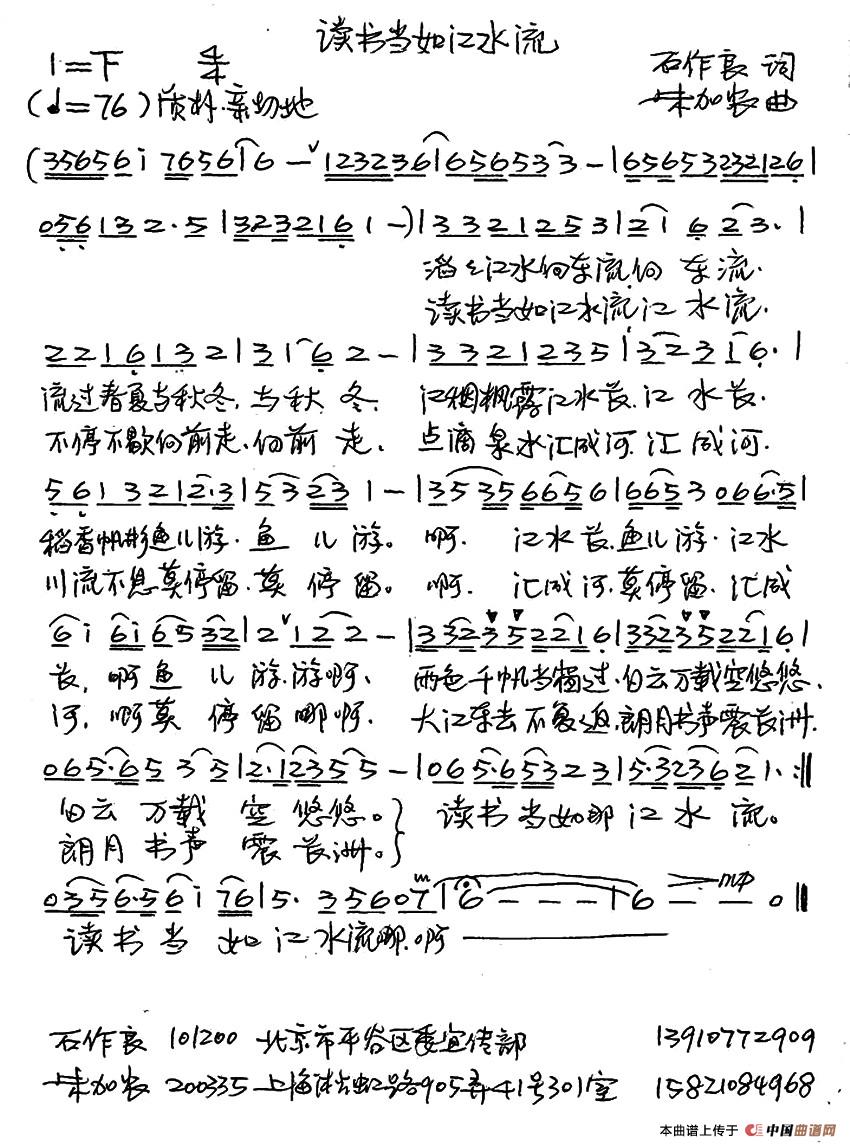 读书当如江水流
1=F 4/4 石作良 词
(♩=76)质朴.亲切地 朱加农 曲
(356561 76561|6 - ˅1232361|6565 3 3 - |6565323212 6|
0561 3 2· 5|3232161 - )|3 3 2 1 2 5 3|2 1 6 2 3·|
滔滔江水向东流,向 东 流.
读书当如江水流,江 水 流.
2 2 1 6 1 3 2|3 1 6 2 -|3 3 2 1 2 3 5|3 2 3 1 6·|
流过春夏与秋冬,与秋 冬, 江稠枫露江水长,江 水 长.
不停不歇向前走,向前 走, 点滴泉水汇成河,汇成河.
5 6 1 3 2 1 2·3|5 3 2 3 1 -|3 5 3 5 6 6 5 6|6 6 5 3 0 6 6·5|
稻香帆影鱼儿游.鱼 儿 游。 啊. 江水长,鱼儿游.江水
川流不息莫停留.莫 停 留。 啊. 汇成河,莫停留.汇成
6 i 6 i 6 5 3 2|2 ˅1 2 2 -|3 3 2 3 5 2 2 1 6|3 3 2 3 5 2 2 1 6|
长, 啊鱼 儿 游.游啊、 两色千帆当独过,白云万载空悠悠、
河, 啊莫 停 留哪啊. 大江东去不复返,朗月书声震长洲.
0 6 5·6 5 3 5|2·1 2 3 5 5 -|0 6 5·6 5 3 2 3|5·3 2 3 6 2 1·:‖
白云 万载 空 悠悠。} 读书当如那 江 水 流。
朗月 书声 震 长洲。}
0 3 5 6·5 6 i 7 6|5· 3 5 6 0 7|6 - - -|6 - - 0‖ mp
读书当 如江水流哪.啊
石作良 101200 北京市平谷区委宣传部 13910772909
朱加农 200335 上海 虹路905弄41号301室 15821084968
本曲谱上传于 中国曲谱网